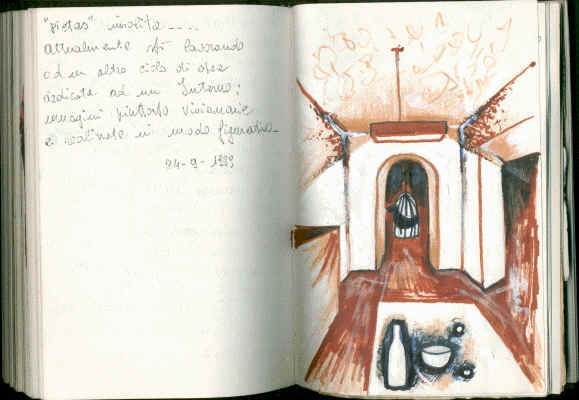 "pietas" insolita ....
Attualmente sto lavorando
ad un altro ciclo di opere
dedicate ad un Interno:
immagini piuttosto visionarie
e realizzate in modo figurativo.
24-9-1999